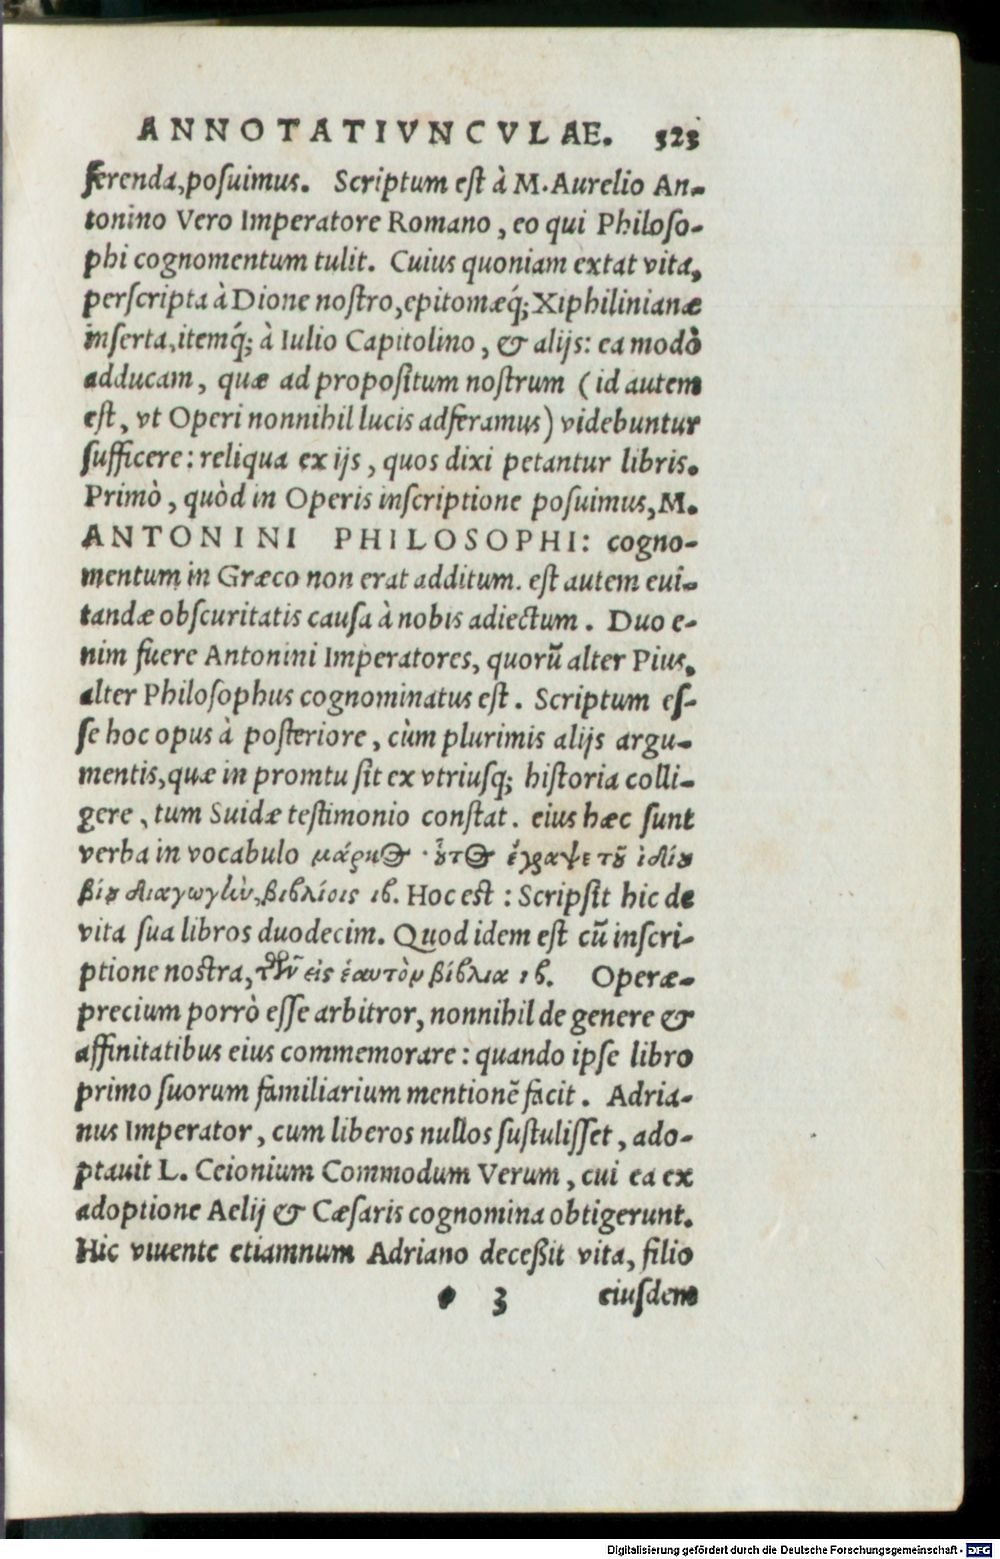 ANNOTATIVNCVLAE. 323
ferenda, posuimus. Scriptum est à M. Aurelio An-
tonino Vero Imperatore Romano, eo qui Philoso-
phi cognomentum tulit. Cuius quoniam extat vita,
perscripta à Dione nostro, epitomæq́; Xiphilinianæ
inserta, itemq́; à Iulio Capitolino, & alijs: ea modò
adducam, quæ ad propositum nostrum (id autem
est, vt Operi nonnihil lucis adferamus) videbuntur
sufficere: reliqua ex ijs, quos dixi petantur libris.
Primò, quòd in Operis inscriptione posuimus, M.
ANTONINI PHILOSOPHI: cogno-
mentum in Græco non erat additum. est autem eui-
tandæ obscuritatis causa à nobis adiectum. Duo e-
nim fuere Antonini Imperatores, quorũ alter Pius,
alter Philosophus cognominatus est. Scriptum es-
se hoc opus à posteriore, cùm plurimis alijs argu-
mentis, quæ in promtu sit ex vtriusq; historia colli-
gere, tum Suidæ testimonio constat. eius hæc sunt
verba in vocabulo μάρκος· οὗτος ἔγραψε τοῦ ἰδίου
βίου διαγωγὴν, βιβλίοις ιβ. Hoc est: Scripsit hic de
vita sua libros duodecim. Quod idem est cũ inscri-
ptione nostra, τῶν εἰς ἑαυτὸν βίβλια ιβ. Operæ-
precium porrò esse arbitror, nonnihil de genere &
affinitatibus eius commemorare: quando ipse libro
primo suorum familiarium mentionẽ facit. Adria-
nus Imperator, cum liberos nullos sustulisset, ado-
ptauit L. Ceionium Commodum Verum, cui ea ex
adoptione Aelij & Cæsaris cognomina obtigerunt.
Hic viuente etiamnum Adriano deceßit vita, filio
3 eiusdem
Digitalisierung gefördert durch die Deutsche Forschungsgemeinschaft - DFG